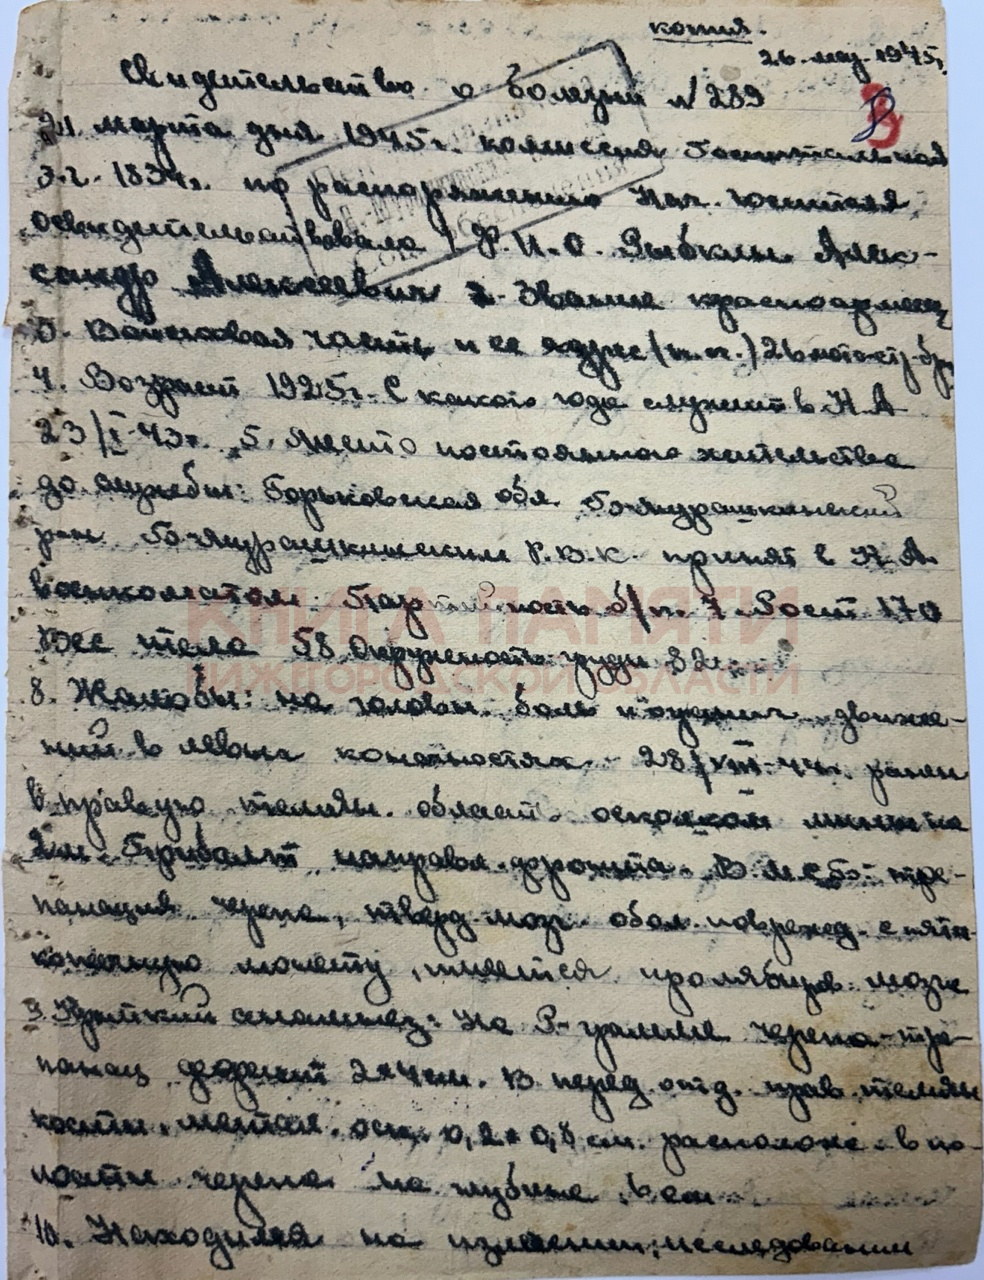 копия.
26. мар. 1945г.
Свидетельство о болезни № 289
21. марта дня 1945г. комиссия Госпитальная
Э.Г. 1834г. по распоряжению Нач. госпиталя
освидетельствовала 1 Ф.И.О. Рыбкин Алек-
сандр Алексеевич 2. Звание красноармеец
3. Войсковая часть и ее адрес (п.п.) 26 мотостр. бр.
4. Возраст 1925г. С какого года служит в К.А
23/I-43г. 5. Место постоянного жительства
до службы: Горьковская обл. Б-Мурашкинский
р-н Б-Мурашкинским Р.В.К. принят в К.А.
военкоматом. Партийность б/п. 7. Рост 170
Вес тела 58 Окружность груди 82
КНИГА ПАМЯТИ
НИЖЕГОРОДСКОЙ ОБЛАСТИ
8. Жалобы: на головн. боль и движе-
ний в левых конечностях - 28/VIII-44г. ранен
в правую темян. область осколком мины на
Прибалт направл. В МСБ: тре-
панация черепа, тверд. мозг. обол. поврежд. с пяти-
копеечную монету, имеется пролябция мозга
9. Краткий анамнез: На R-грамме черепа - тре-
панац дефект 2×4 см. В перед. отд. прав. темян
кости. метал. оск. 0,2×0,8 см. располож. в по-
лости черепа на глубине см
10. Находился на излечении, исследовании